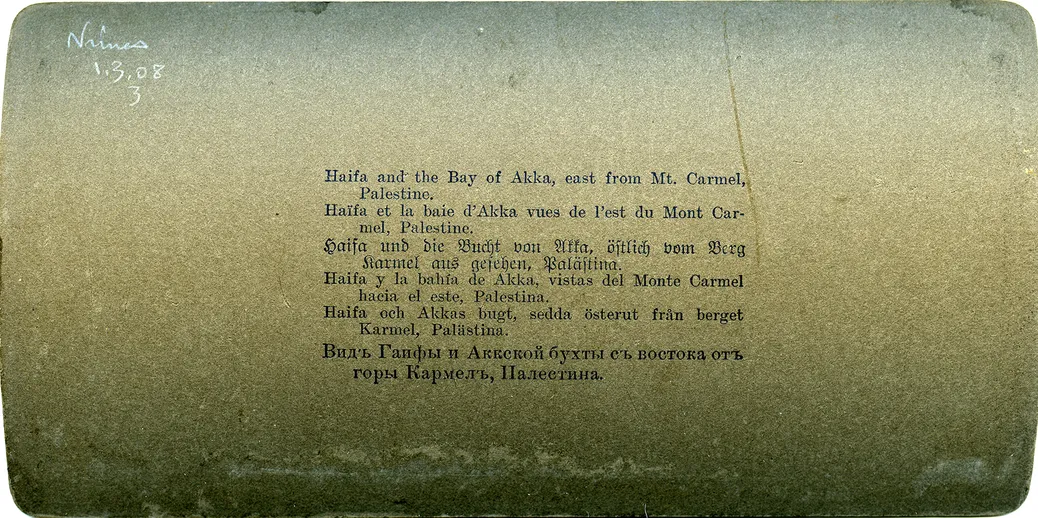 1.3.08
3
Haifa and the Bay of Akka, east from Mt. Carmel,
Palestine.
Haïfa et la baie d'Akka vues de l'est du Mont Car-
mel, Palestine.
Haifa und die Bucht von Akka, östlich vom Berg
Karmel aus gesehen, Palästina.
Haifa y la bahía de Akka, vistas del Monte Carmel
hacia el este, Palestina.
Haifa och Akkas bugt, sedda österut från berget
Karmel, Palästina.
Видъ Гаифы и Аккской бухты съ востока отъ
горы Кармелъ, Палестина.